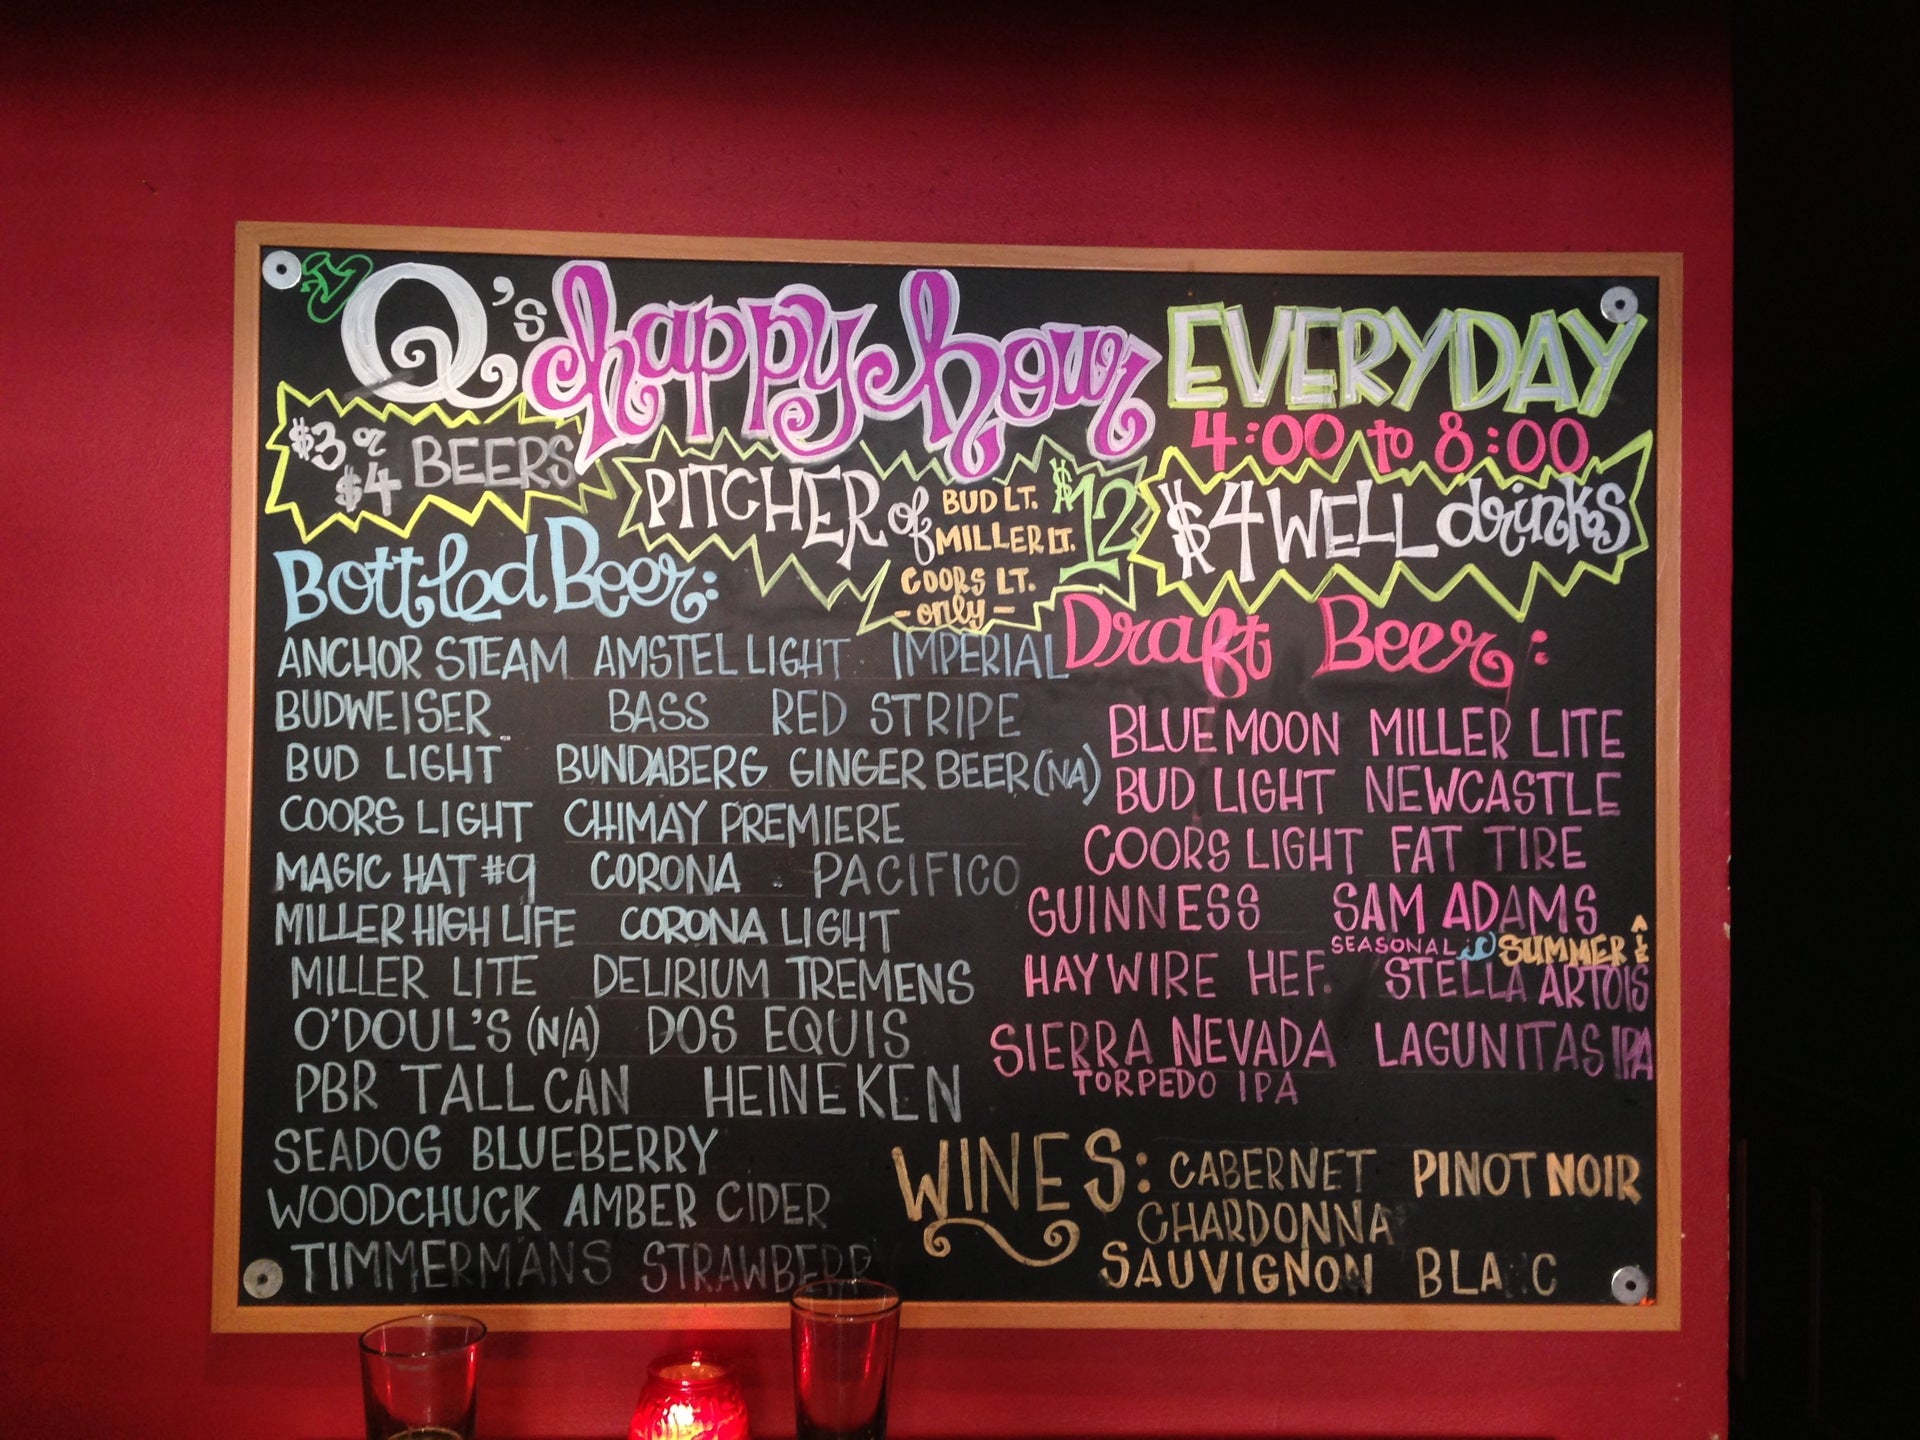 Q's happy hour EVERYDAY
4:00 to 8:00
$3 or $4 BEERS
PITCHER of BUD LT. MILLER LT. COORS LT. -only- $12
$4 WELL drinks
Bottled Beer:
ANCHOR STEAM AMSTEL LIGHT IMPERIAL
BUDWEISER BASS RED STRIPE
BUD LIGHT BUNDABERG GINGER BEER (NA)
COORS LIGHT CHIMAY PREMIERE
MAGIC HAT #9 CORONA PACIFICO
MILLER HIGH LIFE CORONA LIGHT
MILLER LITE DELIRIUM TREMENS
O'DOUL'S (N/A) DOS EQUIS
PBR TALL CAN HEINEKEN
SEADOG BLUEBERRY
WOODCHUCK AMBER CIDER
TIMMERMANS STRAWBERR
Draft Beer:
BLUE MOON MILLER LITE
BUD LIGHT NEWCASTLE
COORS LIGHT FAT TIRE
GUINNESS SAM ADAMS
SEASONAL SUMMER ALE
HAYWIRE HEF. STELLA ARTOIS
SIERRA NEVADA LAGUNITAS IPA
TORPEDO IPA
WINES: CABERNET PINOT NOIR
CHARDONNA
SAUVIGNON BLANC